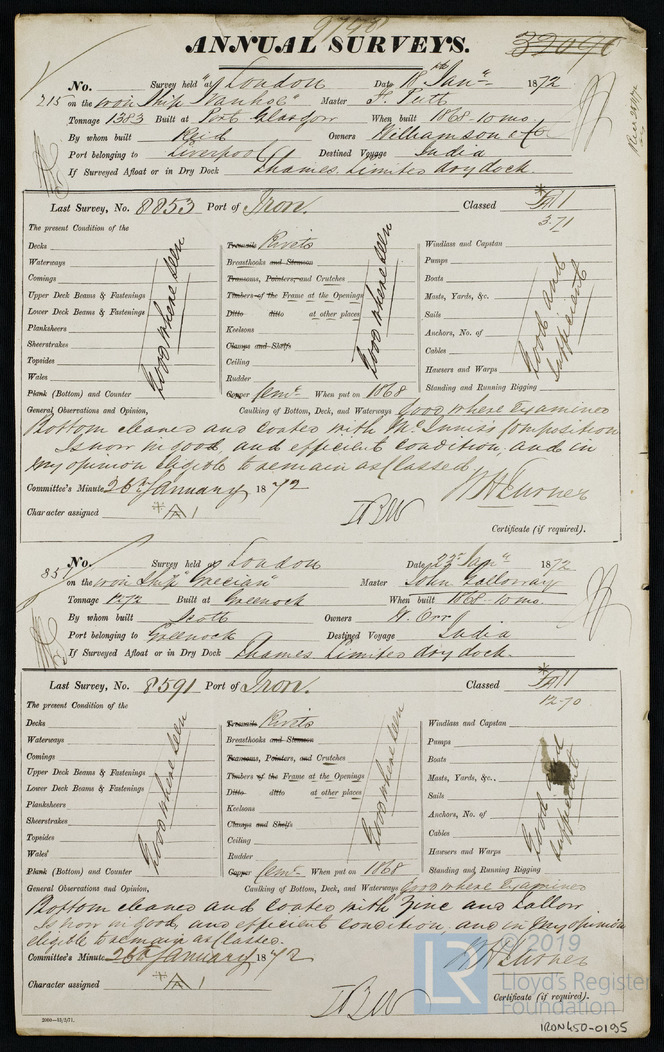 9798
ANNUAL SURVEYS.
39090
No. Survey held at London Date 18th Janry 1872
215 on the iron Ship "Ivanhoe" Master
Tonnage 1383 Built at Port Glasgow When built 1868-10 mo.
By whom built Reid Owners Williamson & Co
Port belonging to Liverpool Destined Voyage India
If Surveyed Afloat or in Dry Dock Thames Limited dry dock.
Last Survey, No. 8853 Port of Iron. Classed
3.71
The present Condition of the
Decks
Waterways
Comings
Upper Deck Beams & Fastenings
Lower Deck Beams & Fastenings
Planksheers
Sheerstrakes
Topsides
Wales
Plank (Bottom) and Counter
Good where seen
Treenails Rivets
Breasthooks and Stemson
Transoms, Pointers, and Crutches
Timbers of the Frame at the Openings
Ditto ditto at other places
Keelsons
Clamps and Shelfs
Ceiling
Rudder
Copper Cemt When put on 1868
Good where seen
Windlass and Capstan
Pumps
Boats
Masts, Yards, &c.
Sails
Anchors, No. of
Cables
Hawsers and Warps
Standing and Running Rigging
Good and sufficient
General Observations and Opinion, Caulking of Bottom, Deck, and Waterways Good where Examined
Bottom cleaned and coated with Mc Innis's Composition
Is now in good and efficient condition, and in
my opinion eligible to remain as Classed.
Committee's Minute 26th January 1872
Character assigned A 1
Certificate (if required).
No. Survey held at London Date 23rd Janry 1872
85 on the iron Ship "Grecian" Master John Galloway
Tonnage 1272 Built at Greenock When built 1868-10 mo.
By whom built Scott Owners W. Orr
Port belonging to Greenock Destined Voyage India
If Surveyed Afloat or in Dry Dock Thames Limited dry dock.
Last Survey, No. 8591 Port of Iron. Classed
12-70
The present Condition of the
Decks
Waterways
Comings
Upper Deck Beams & Fastenings
Lower Deck Beams & Fastenings
Planksheers
Sheerstrakes
Topsides
Wales
Plank (Bottom) and Counter
Good where seen
Treenails Rivets
Breasthooks and Stemson
Transoms, Pointers, and Crutches
Timbers of the Frame at the Openings
Ditto ditto at other places
Keelsons
Clamps and Shelfs
Ceiling
Rudder
Copper Cemt When put on 1868
Good where seen
Windlass and Capstan
Pumps
Boats
Masts, Yards, &c.
Sails
Anchors, No. of
Cables
Hawsers and Warps
Standing and Running Rigging
Good and sufficient
General Observations and Opinion, Caulking of Bottom, Deck, and Waterways Good where Examined
Bottom cleaned and coated with Zinc and Tallow
Is now in good and efficient condition and in my opinion
eligible to remain as Classed.
Committee's Minute 26th January 1872
Character assigned A 1
Certificate (if required).
LR © 2019
Lloyd's Register
Foundation
2000—13/2/71.
IRON450-0195